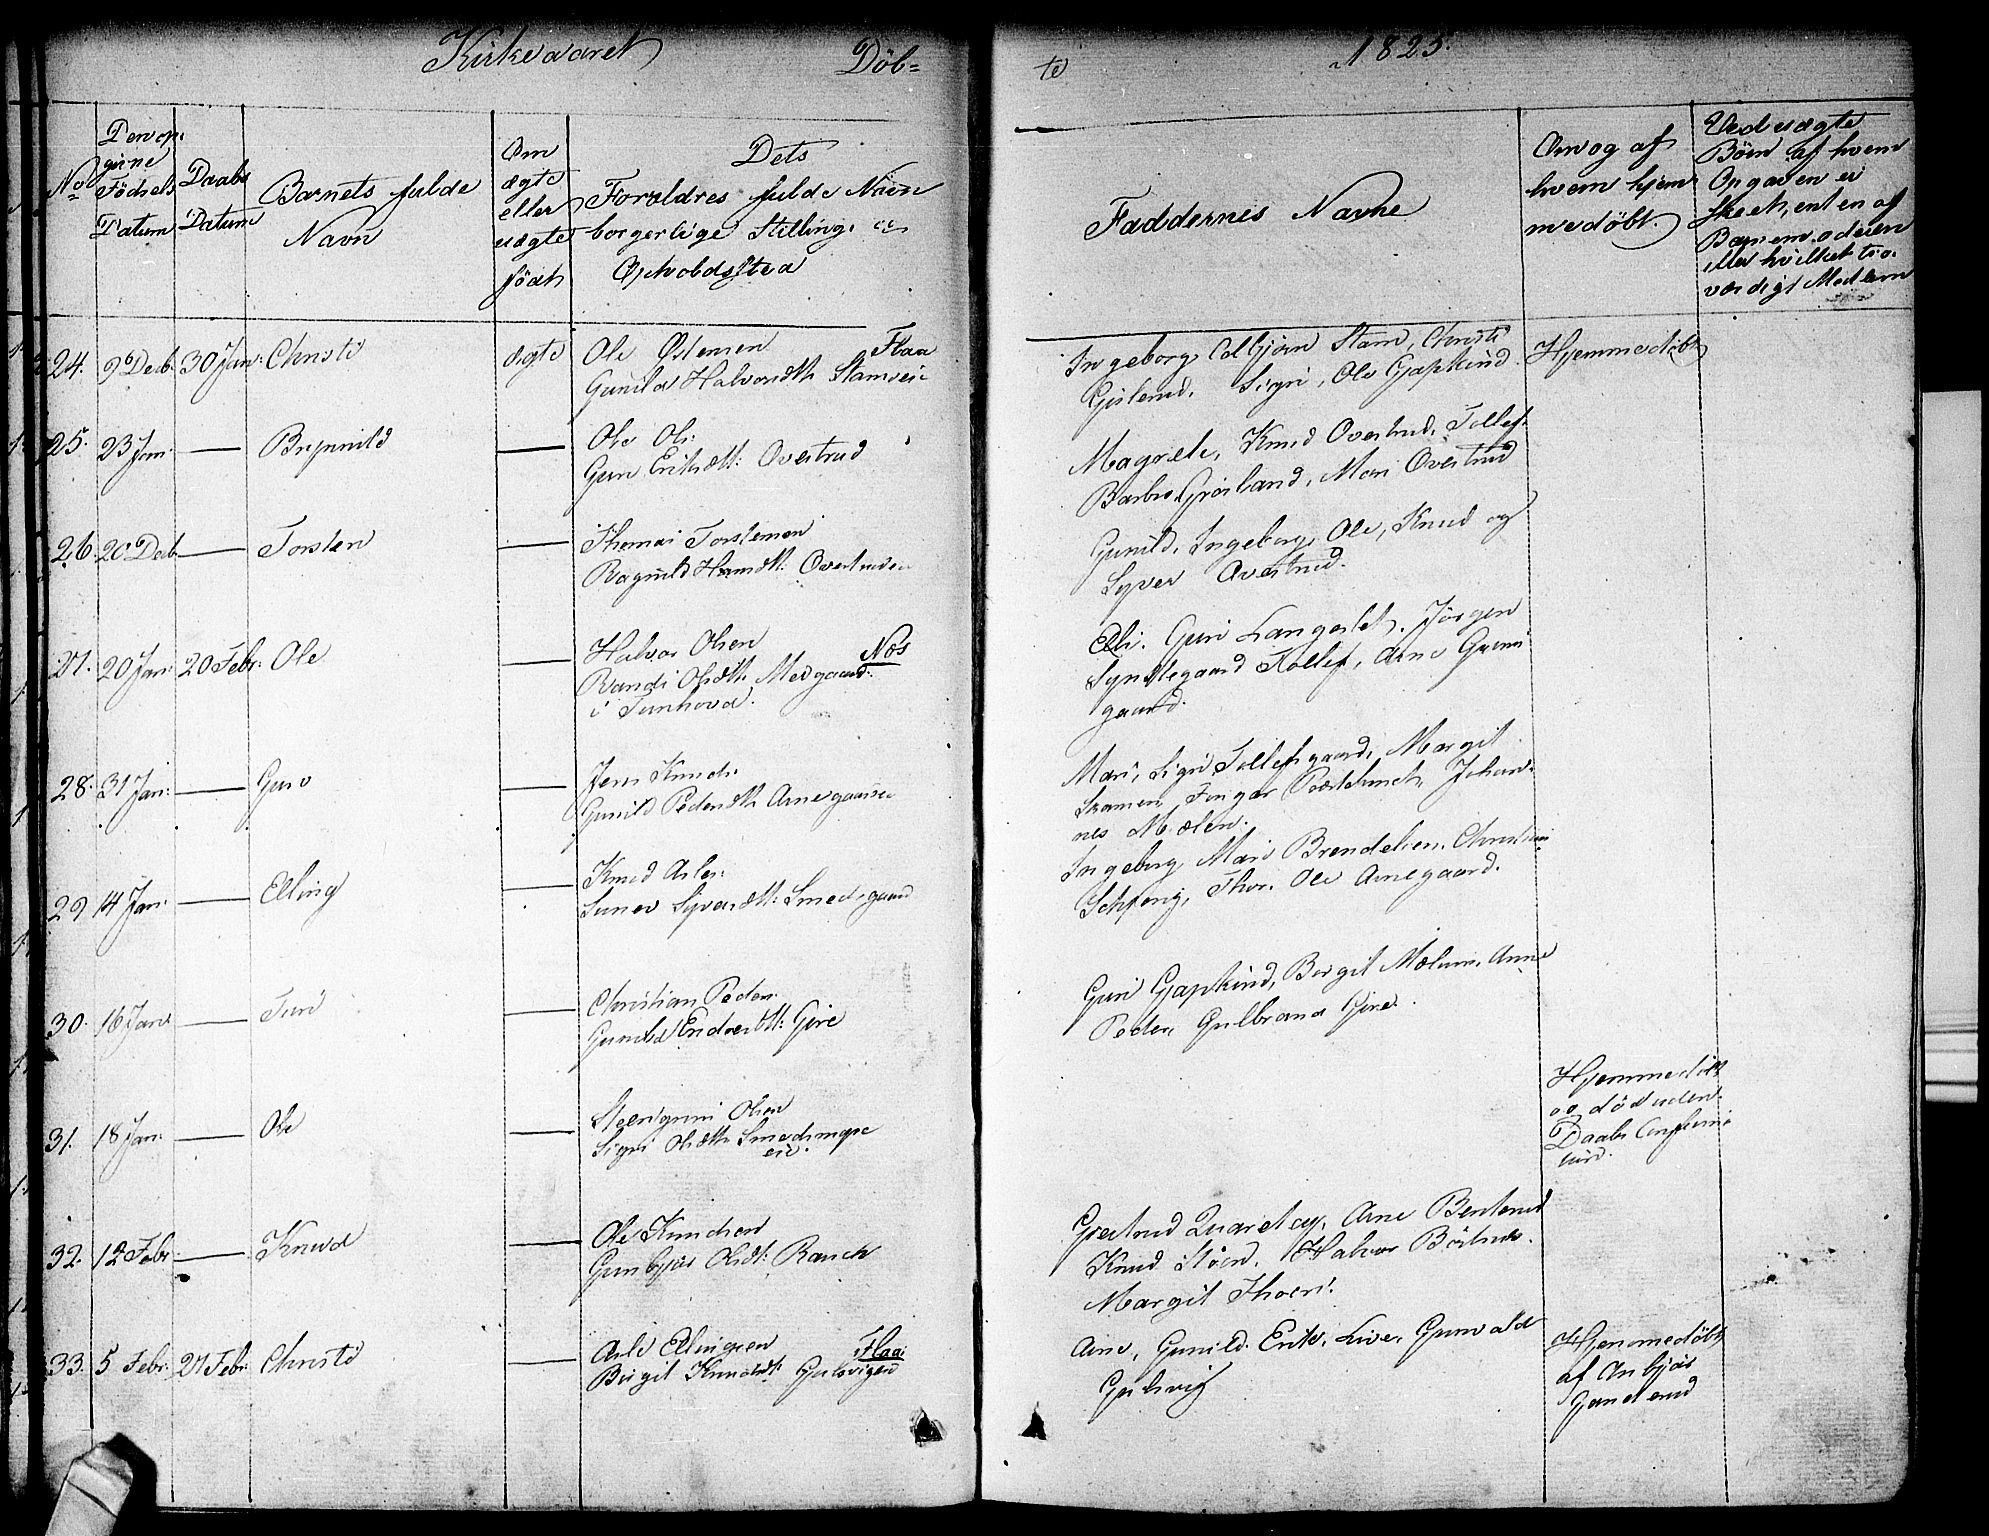 Kirkeaaret
Döb=
te
1825.
No
Den op:
givne
Födsels
Datum
Daabs
Datum
Barnets fulde
Navn
Om
ægte
eller
uægte
födt
Dets
Forældres fulde Navn
borgerlige Stilling. og
Opholdsstæd
Faddernes Navne
Om og af
hvem hjem
medöbt.
Ved uægte
Börn af hvem
Opgaven er
skeet, enten af
Barnemoderen
eller hvilket tro.
værdigt Medlem
24. 9 Decb. 30 Jan: Christi ægte Ole Østensen Flaa
Gunild Halvorsdtr.
Ingeborg, Colbjörn Stam, Christi
Gislerud. Sigri, Ole Gjaptind.
Hjemmedöbt
25. 23 Jan. — Brynnild — Ole Ols:
Guri Eriksdtr: Overtrud
Magrete, Knud Overtrud, Tollef
Barbro, Mari Overtrud
26. 20 Decb — Torsten — Thomas Torstensen
Ragnild Overtruden
Gunild, Ingeborg, Ole, Knud og
Syver Overtrud.
27. 20 Jan: 20 Febr: Ole — Halvor Olsen Næs
Randi Olsdtr. Medgaard.
i Tunhövd.
Eli. Guri Langeslet. Jörgen
Syndlegaard Tollef, Arne Grimsgaard.
28. 31 Jan: — Guro — Jens Knuds:
Gunild Pedersdtr. Arnegaards
Mari, Sigri Tollefsgaard, Margit
Johannes Mælen.
29 14 Jan: — Elling — Knud Asles:
Syversdtr: Smedsgaard
Ingeborg, Mari Brendelsen. Christian
Schjong, Thor. Ole Arnegaard.
30. 16 Jan: — Turi — Christian Peders.
Gunild Endresdtr: Gire
Guri Gjaptind, Birgit Mælum, Anne
Peder, Gulbrand Gire.
31. 18 Jan: — Ole — Steengrim Olsen
Sigri Olsdtr.
eie.
Hjemmedöbt
og död uden
Daabs
32. 12 Febr — Knud — Ole Knudsen
Gunbjör Olsdt: Rauch
Giertrud, Arne Bentsrud
Knud Stöen. Halvor
Margit Thoen.
33. 5 Febr: 27 Febr: Christi — Asle Ellingsen Flaa:
Birgit Knudsdt: Gulsvigen
Arne, Gunild. Erik, Live, Gunvald
Gulsvig
Hjemmedöbt
af Anbjör